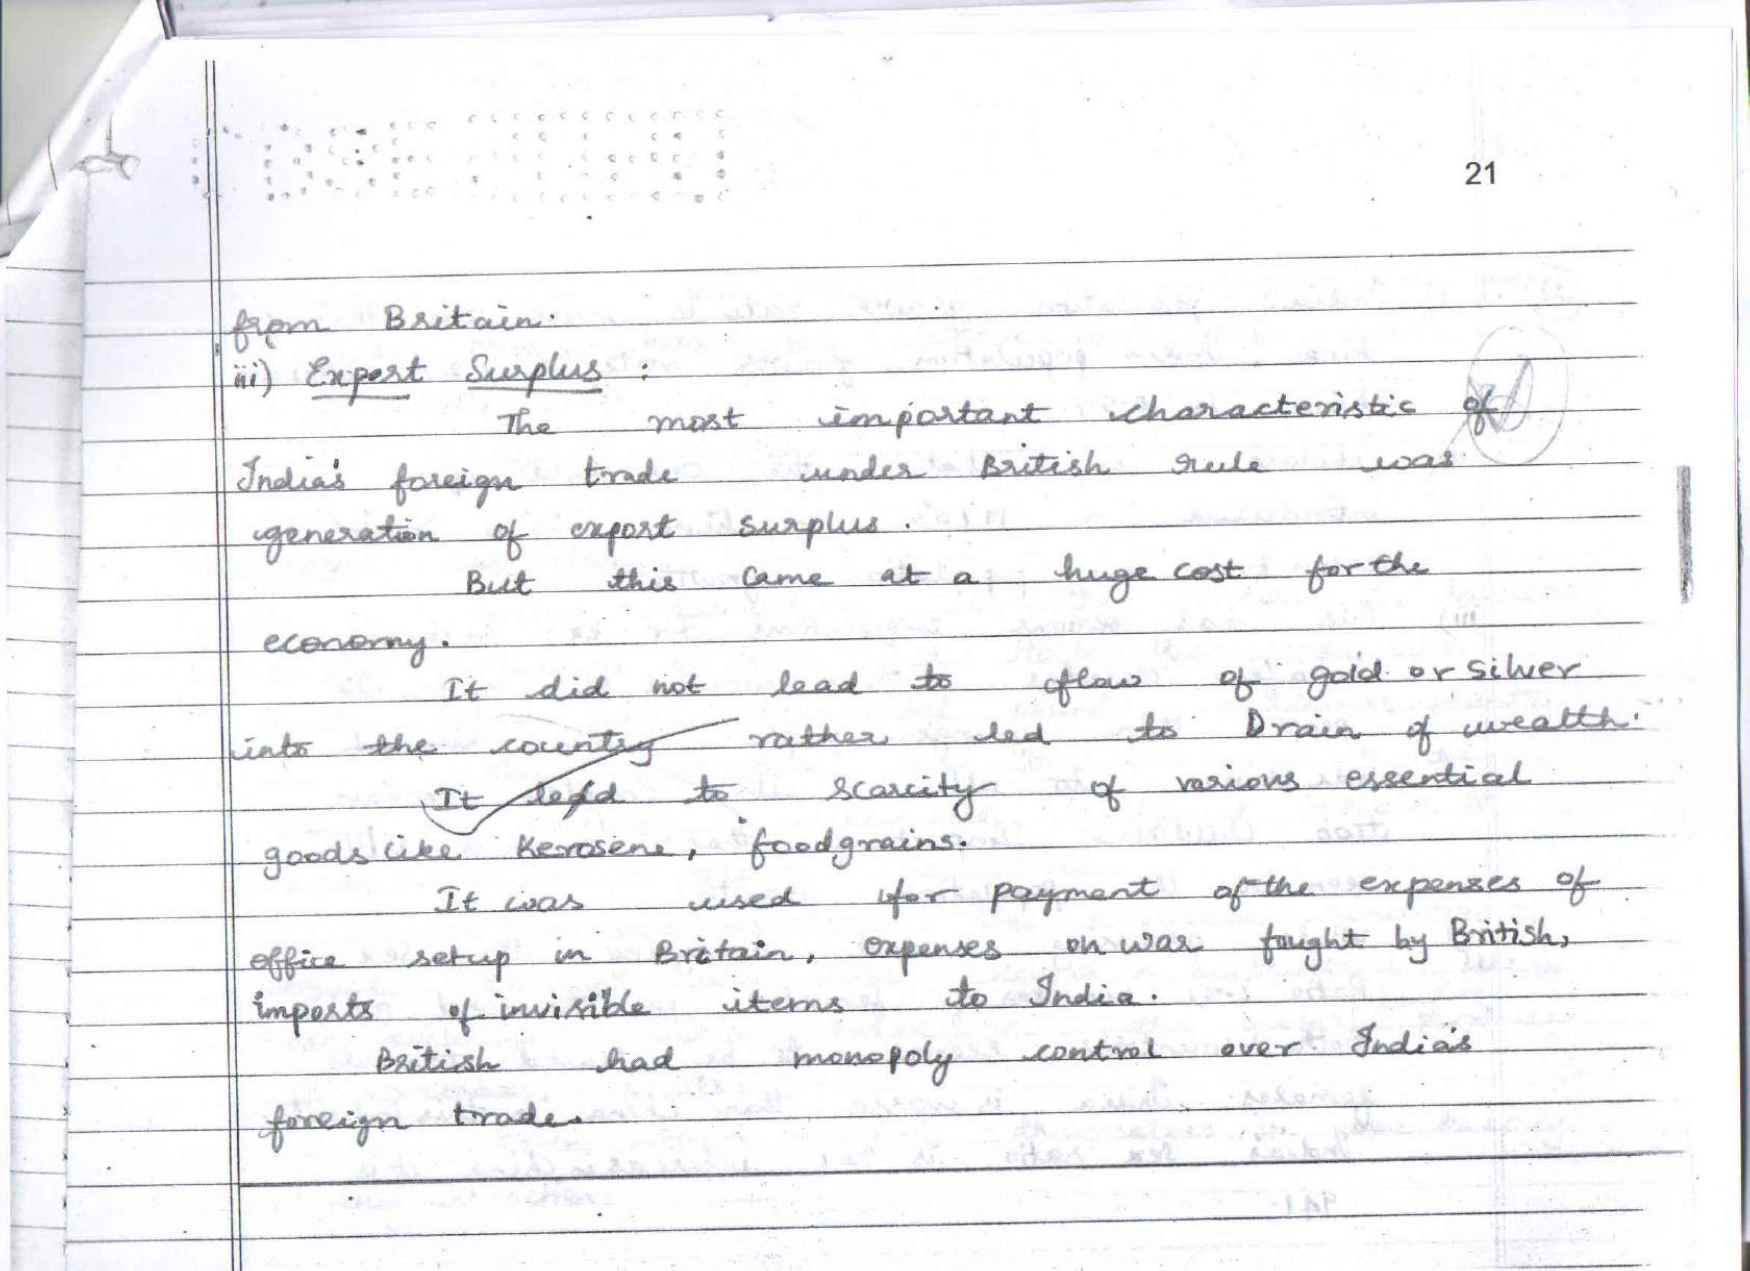 21
from Britain.
iii) Export Surplus :
The most important characteristic of
India's foreign trade under British rule was
generation of export surplus.
But this came at a huge cost for the
economy.
It did not lead to flow of gold or silver
into the country rather led to Drain of wealth.
It led to scarcity of various essential
goods like Kerosene, foodgrains.
It was used for payment of the expenses of
office setup in Britain, expenses on war fought by British,
imports of invisible items to India.
British had monopoly control over India's
foreign trade.